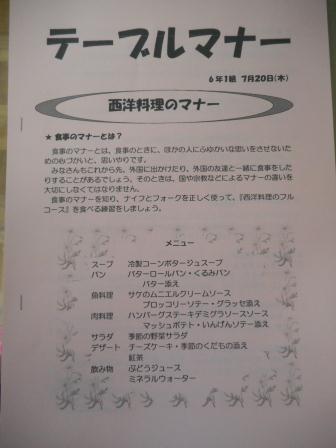 テーブルマナー
6年1組 7月20日(木)
西洋料理のマナー
★ 食事のマナーとは？
食事のマナーとは、食事のときに、ほかの人にふゆかいな思いをさせないた
めの心づかいと、思いやりです。
みなさんもこれから先、外国に出かけたり、外国の友達と一緒に食事をした
りすることがあるでしょう。そのときは、国や宗教などによるマナーの違いを
大切にしなくてはなりません。
食事のマナーを知り、ナイフとフォークを正しく使って、『西洋料理のフル
コース』を食べる練習をしましょう。
メニュー
スープ 冷製コーンポタージュスープ
パン バターロールパン・くるみパン
バター添え
魚料理 サケのムニエルクリームソース
ブロッコリーソテー・グラッセ添え
肉料理 ハンバーグステーキデミグラスソース
マッシュポテト・いんげんソテー添え
サラダ 季節の野菜サラダ
デザート チーズケーキ・季節のくだもの添え
紅茶
飲み物 ぶどうジュース
ミネラルウォーター